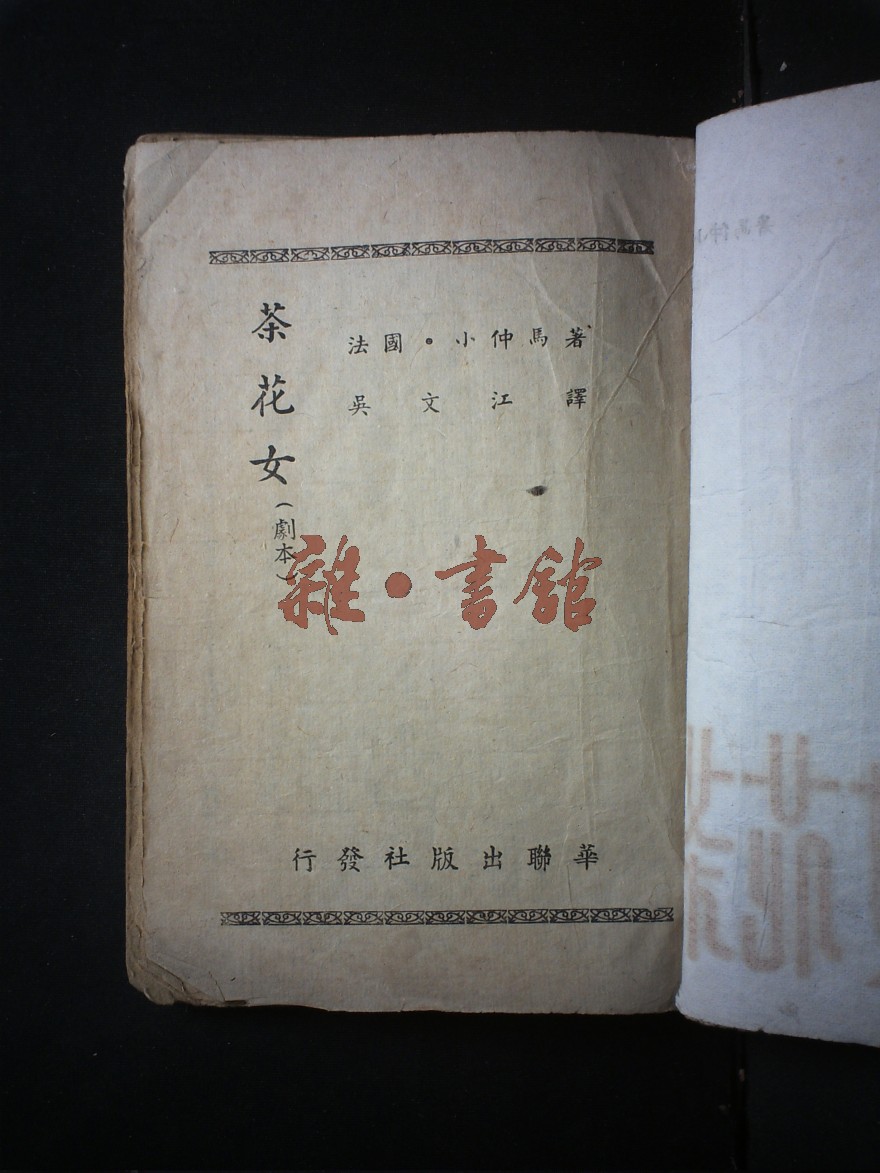 茶花女(劇本)
法國•小仲馬著
吳文江譯
雜•書館
華聯出版社發行